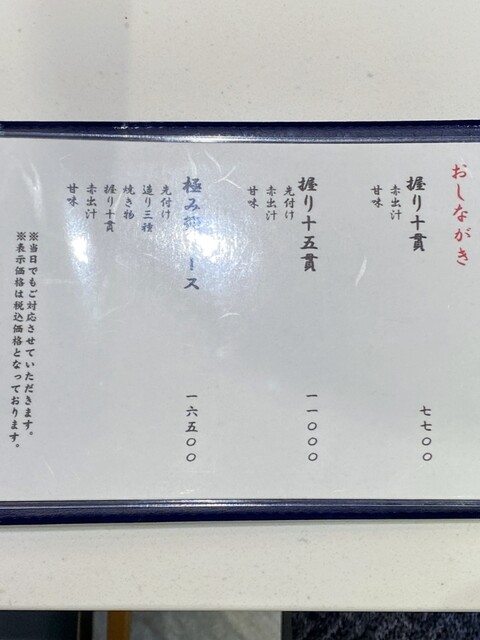 おしながき
握り十貫
七七〇〇
赤出汁
甘味
握り十五貫
一一〇〇〇
先付け
赤出汁
甘味
極み コース
一六五〇〇
先付け
造り三種
焼き物
握り十貫
赤出汁
甘味
※当日でもご対応させていただきます。
※表示価格は税込価格となっております。